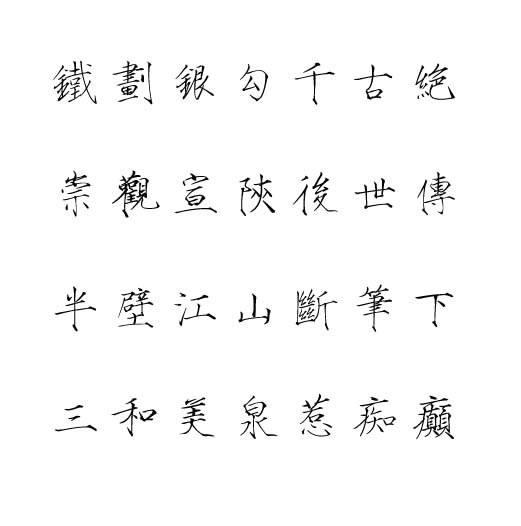 鐵劃銀勾千古絕
崇觀宣陝後世傳
半壁江山斷筆下
三和美泉惹痴癲